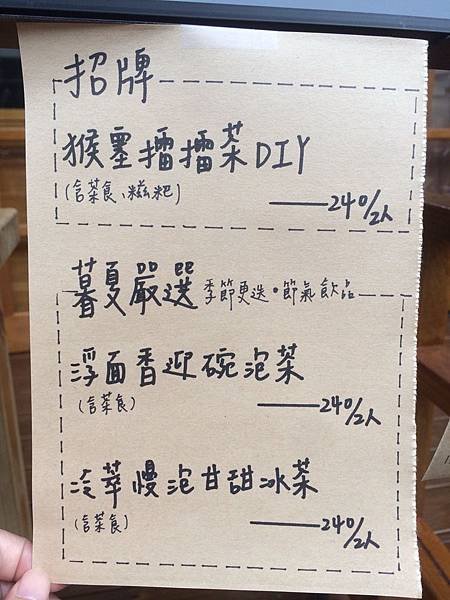 招牌
猴擂擂茶DIY
(含茶食、糍粑)
240/2人
暮夏嚴選 季節更迭。節氣飲品
浮面香迎碗泡茶
(含茶食)
240/2人
冷萃慢泡甘甜冰茶
(含茶食)
240/2人